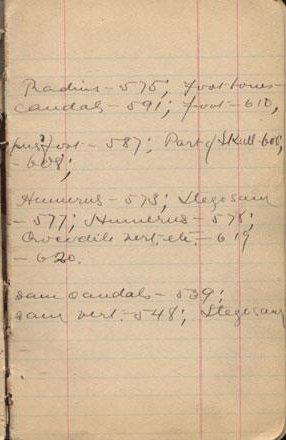 Radius - 575; foot bones -
caudals - 591; foot - 610,
foot - 587; Part of skull - 606,
- 608;
Humerus - 573; Stegosaur
- 577; Humerus - 578;
Crocodile vert. etc - 619
- 620.
saur caudals - 539;
saur vert. - 548; Stegosaur